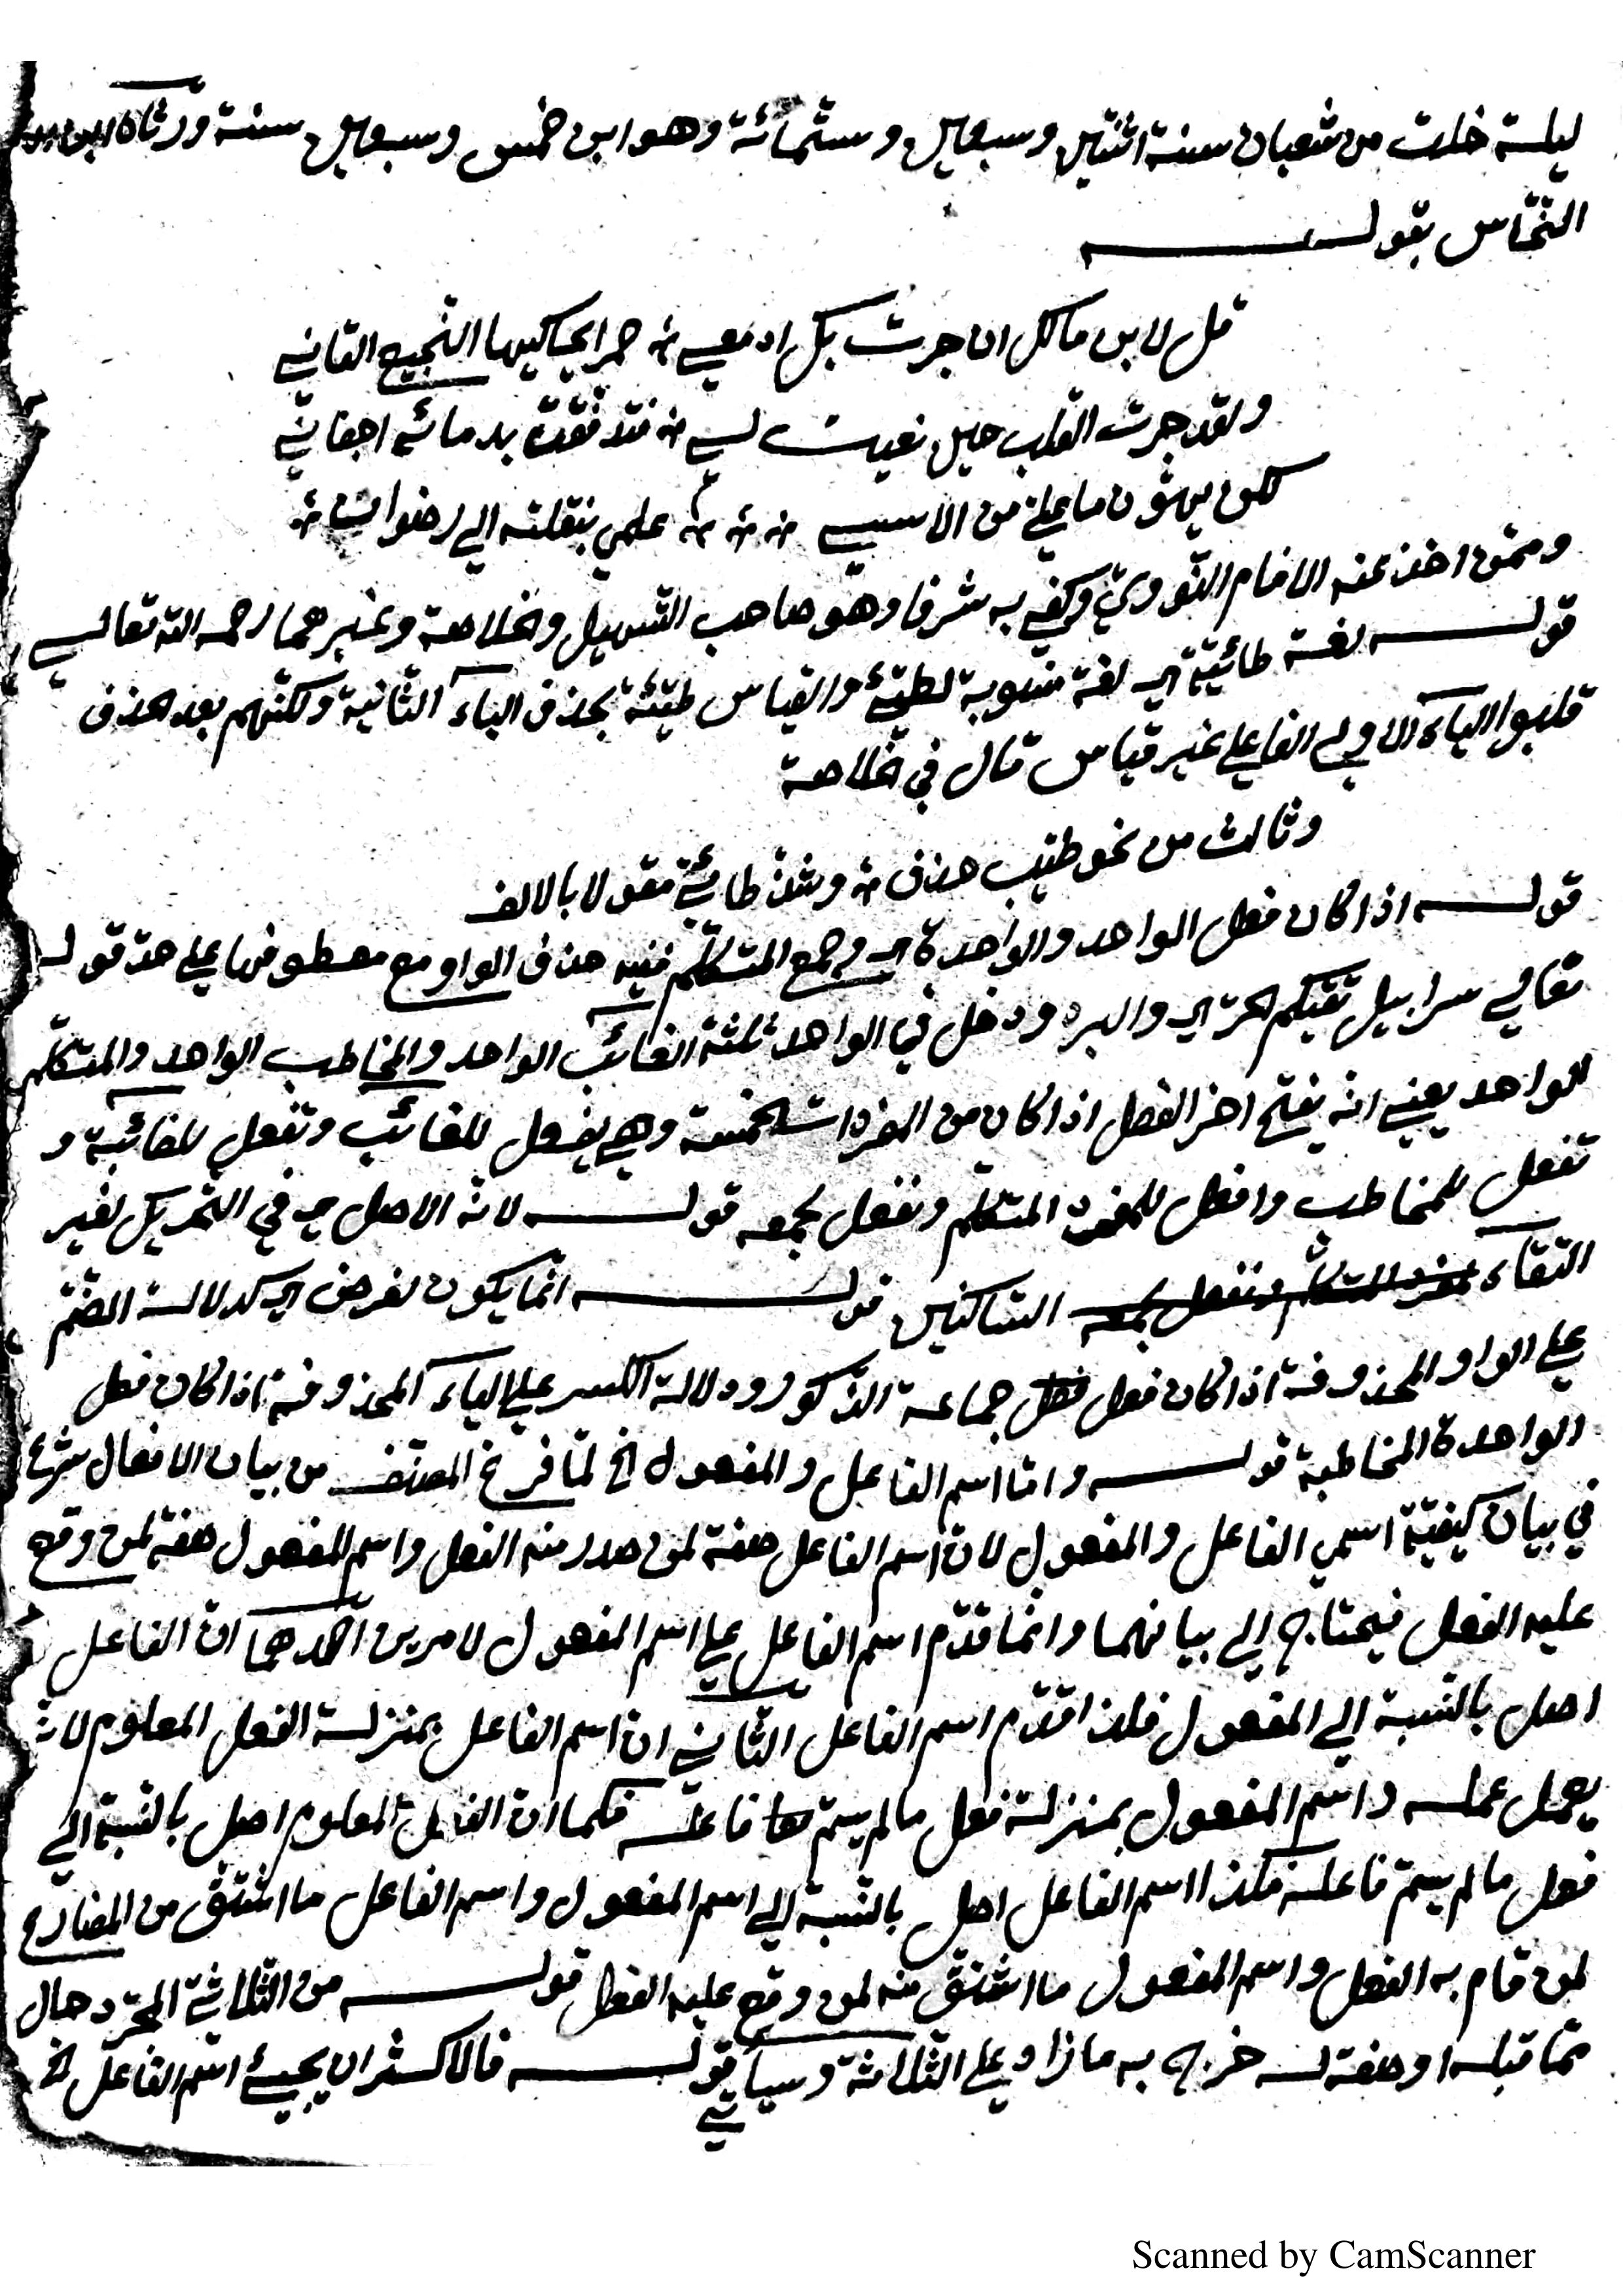 ليلة خلت من شعبان سنة اثنتين وسبعين وستمائة وهو ابن خمس وسبعين سنة ورثاه
النحّاس بقوله
قل لابن مالك ان جرت بك ادمعي حمرا يحاكيها النجيع القاني
ولقد جرت القلب حين نعيت لي فتدفّقت بدمائه اجفاني
لكن يهوّن ما علي من الاسي علمي بنقلته الي رضوان
وممن اخذ عنه الامام النّوويّ وكفي به شرفا وهو صاحب التسهيل والخلاصة وغيرهما رحمه الله تعالي
قوله لغة طائيّة اي لغة منسوبة لطيّئ والقياس طيّئة بحذف الياء الثانية ولكنّهم بعد الحذف
قلبوا الياء الاولي الفا علي غير قياس قال في الخلاصة
وثالث من نحو طيّب حذف وشذّ طائيّ مقولا بالالف
قوله اذا كان فعل الواحد والواحدة اي وجمع المتكلّم ففيه حذف الواو مع معطوفها علي حدّ قوله
تعالي سرابيل تقيكم الحرّ اي والبرد ودخل في الواحد ثلثة الغائب الواحد والمخاطب الواحد والمتكلّم
الواحد يعني انه يفتح اخر الفعل اذا كان من المفردات الخمسة وهي يفعل للغائب وتفعل للغائبة و
تفعل للمخاطب وافعل للمفرد المتكلم ونفعل لجمعه قوله لانّ الاصل اي في التحريك لغير
التقاء السّاكنين قوله انّما يكون لغرض اي كدلالة الضّم
علي الواو المحذوفة اذا كان فعل جماعة الذّكور ودلالة الكسر علي الياء المحذوفة اذا كان فعل
الواحدة المخاطبة قوله وامّا اسم الفاعل والمفعول الخ لمّا فرغ المصنّف من بيان الافعال شرع
في بيان كيفيّة اسمي الفاعل والمفعول لانّ اسم الفاعل صفة لمن صدر منه الفعل واسم المفعول صفة لمن وقع
عليه الفعل فيحتاج الي بيانهما وانّما قدّم اسم الفاعل علي اسم المفعول لامرين احدهما انّ الفاعل
اصل بالنّسبة الي المفعول فلذا قدّم اسم الفاعل الثّاني ان اسم الفاعل بمنزلة الفعل المعلوم لانّه
يعمل عمله واسم المفعول بمنزلة فعل ما لم يسمّ فاعله فكما انّ الفعل المعلوم اصل بالنّسبة الي
فعل ما لم يسمّ فاعله فكذا اسم الفاعل اصل بالنّسبة الي اسم المفعول واسم الفاعل ما اشتقّ من المضارع
لمن قام به الفعل واسم المفعول ما اشتقّ منه لمن وقع عليه الفعل قوله من الثّلاثيّ المجرّد حال
ممّا قبله او صفة له خرج به ما زاد علي الثّلاثة وسيأتي قوله فالاكثر ان يجيئ اسم الفاعل الخ
Scanned by CamScanner